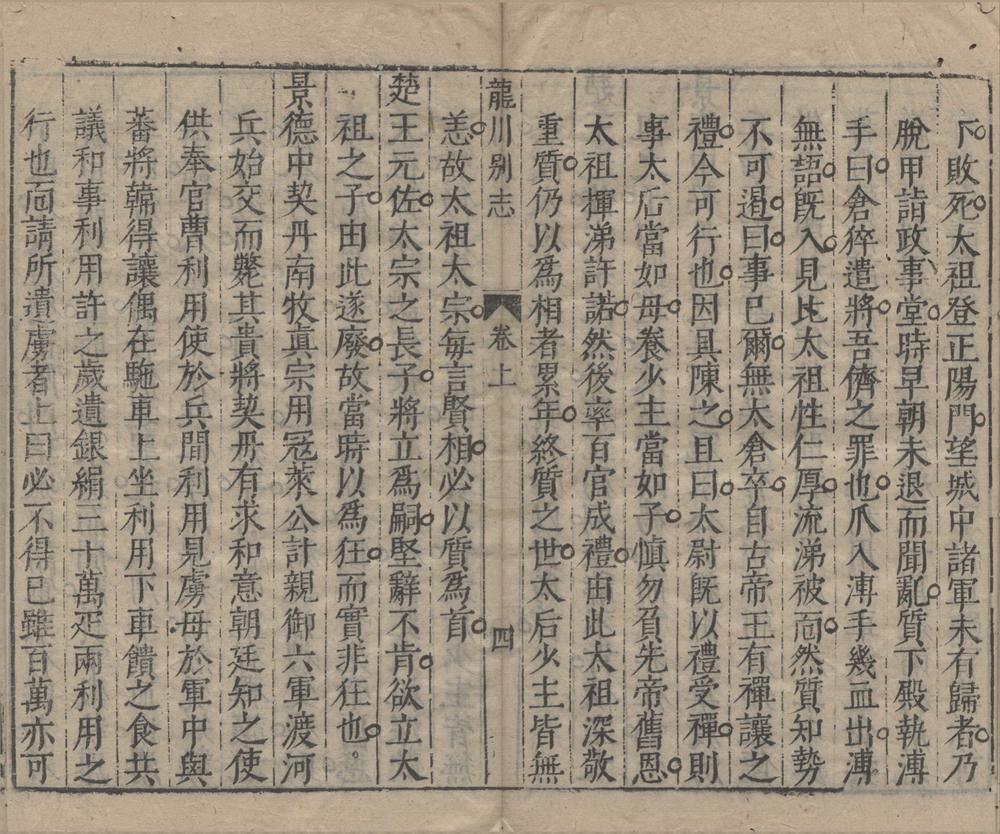 下敗死太祖登正陽門望城中諸軍未有歸者乃
脫甲詣政事堂時早朝未退而聞亂質下殿執溥
手曰倉猝遣將吾儕之罪也爪入溥手幾血出溥
無語既入見比太祖性仁厚流涕被面然質知勢
不可遏曰事已爾無太倉卒自古帝王有禪讓之
禮今可行也因具陳之且曰太尉既以禮受禪則
事太后當如母養少主當如子慎勿負先帝舊恩
太祖揮涕許諾然後率百官成禮由此太祖深敬
重質仍以為相者累年終質之世太后少主皆無
恙故太祖太宗每言賢相必以質為首
龍川別志 卷上 四
楚王元佐太宗之長子將立為嗣堅辭不肯欲立太
祖之子由此遂廢故當時以為狂而實非狂也
景德中契丹南牧真宗用冦萊公計親御六軍渡河
兵始交而斃其貴將契丹有求和意朝廷知之使
供奉官曹利用使於兵間利用見虜母於軍中與
蕃將韓得讓偶在駞車上坐利用下車饋之食共
議和事利用許之歲遺銀絹三十萬疋兩利用之
行也面請所遺虜者上曰必不得已雖百萬亦可